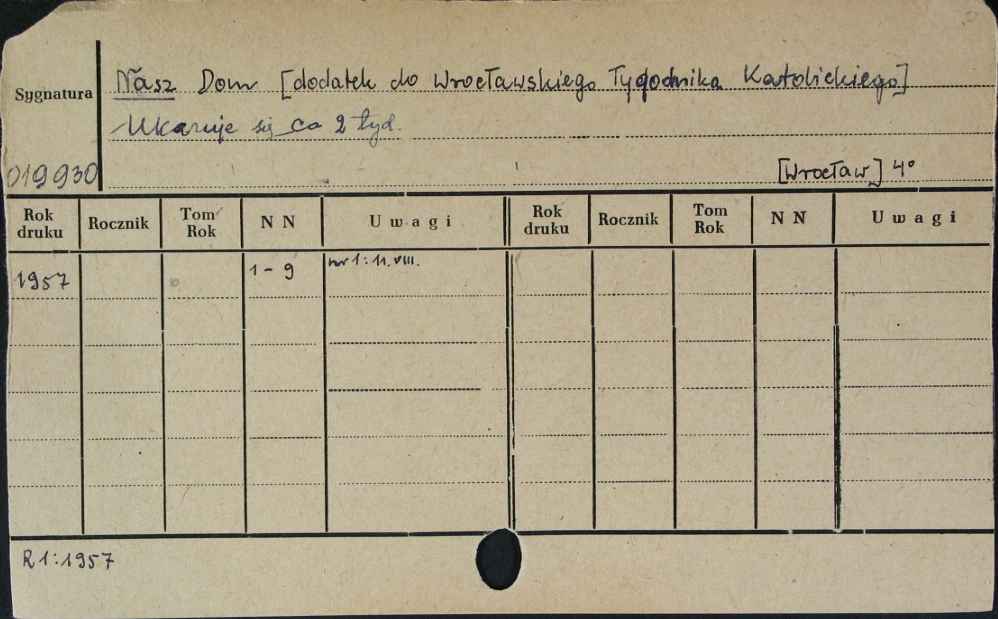 Nasz Dom [dodatek do Wrocławskiego Tygodnika Katolickiego]
Sygnatura
Ukazuje się co 2 tyd.
019930
[Wrocław] 4°
Rok druku Rocznik Tom Rok NN Uwagi Rok druku Rocznik Tom Rok NN Uwagi
1957 1-9 nr 1: 11.VIII.
R 1:1957